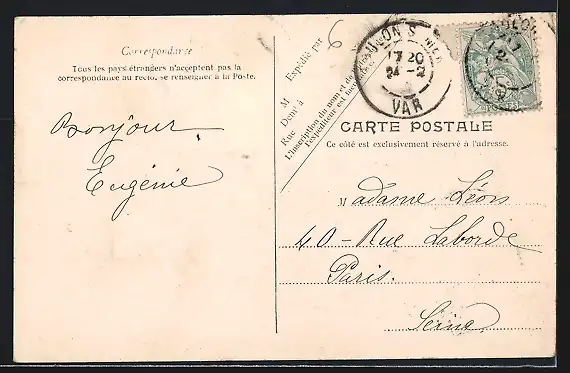 Correspondance
Tous les pays étrangers n'acceptent pas la
correspondance au recto, se renseigner à la Poste.
Bonjour
Eugénie
Expédié par
6
M
Demt à
Rue
L'inscription du nom et de
l'expéditeur est
17 20
24 -2
VAR
CARTE POSTALE
Ce côté est exclusivement réservé à l'adresse.
Madame Léon
40 - Rue Laborde
Paris.
Seine